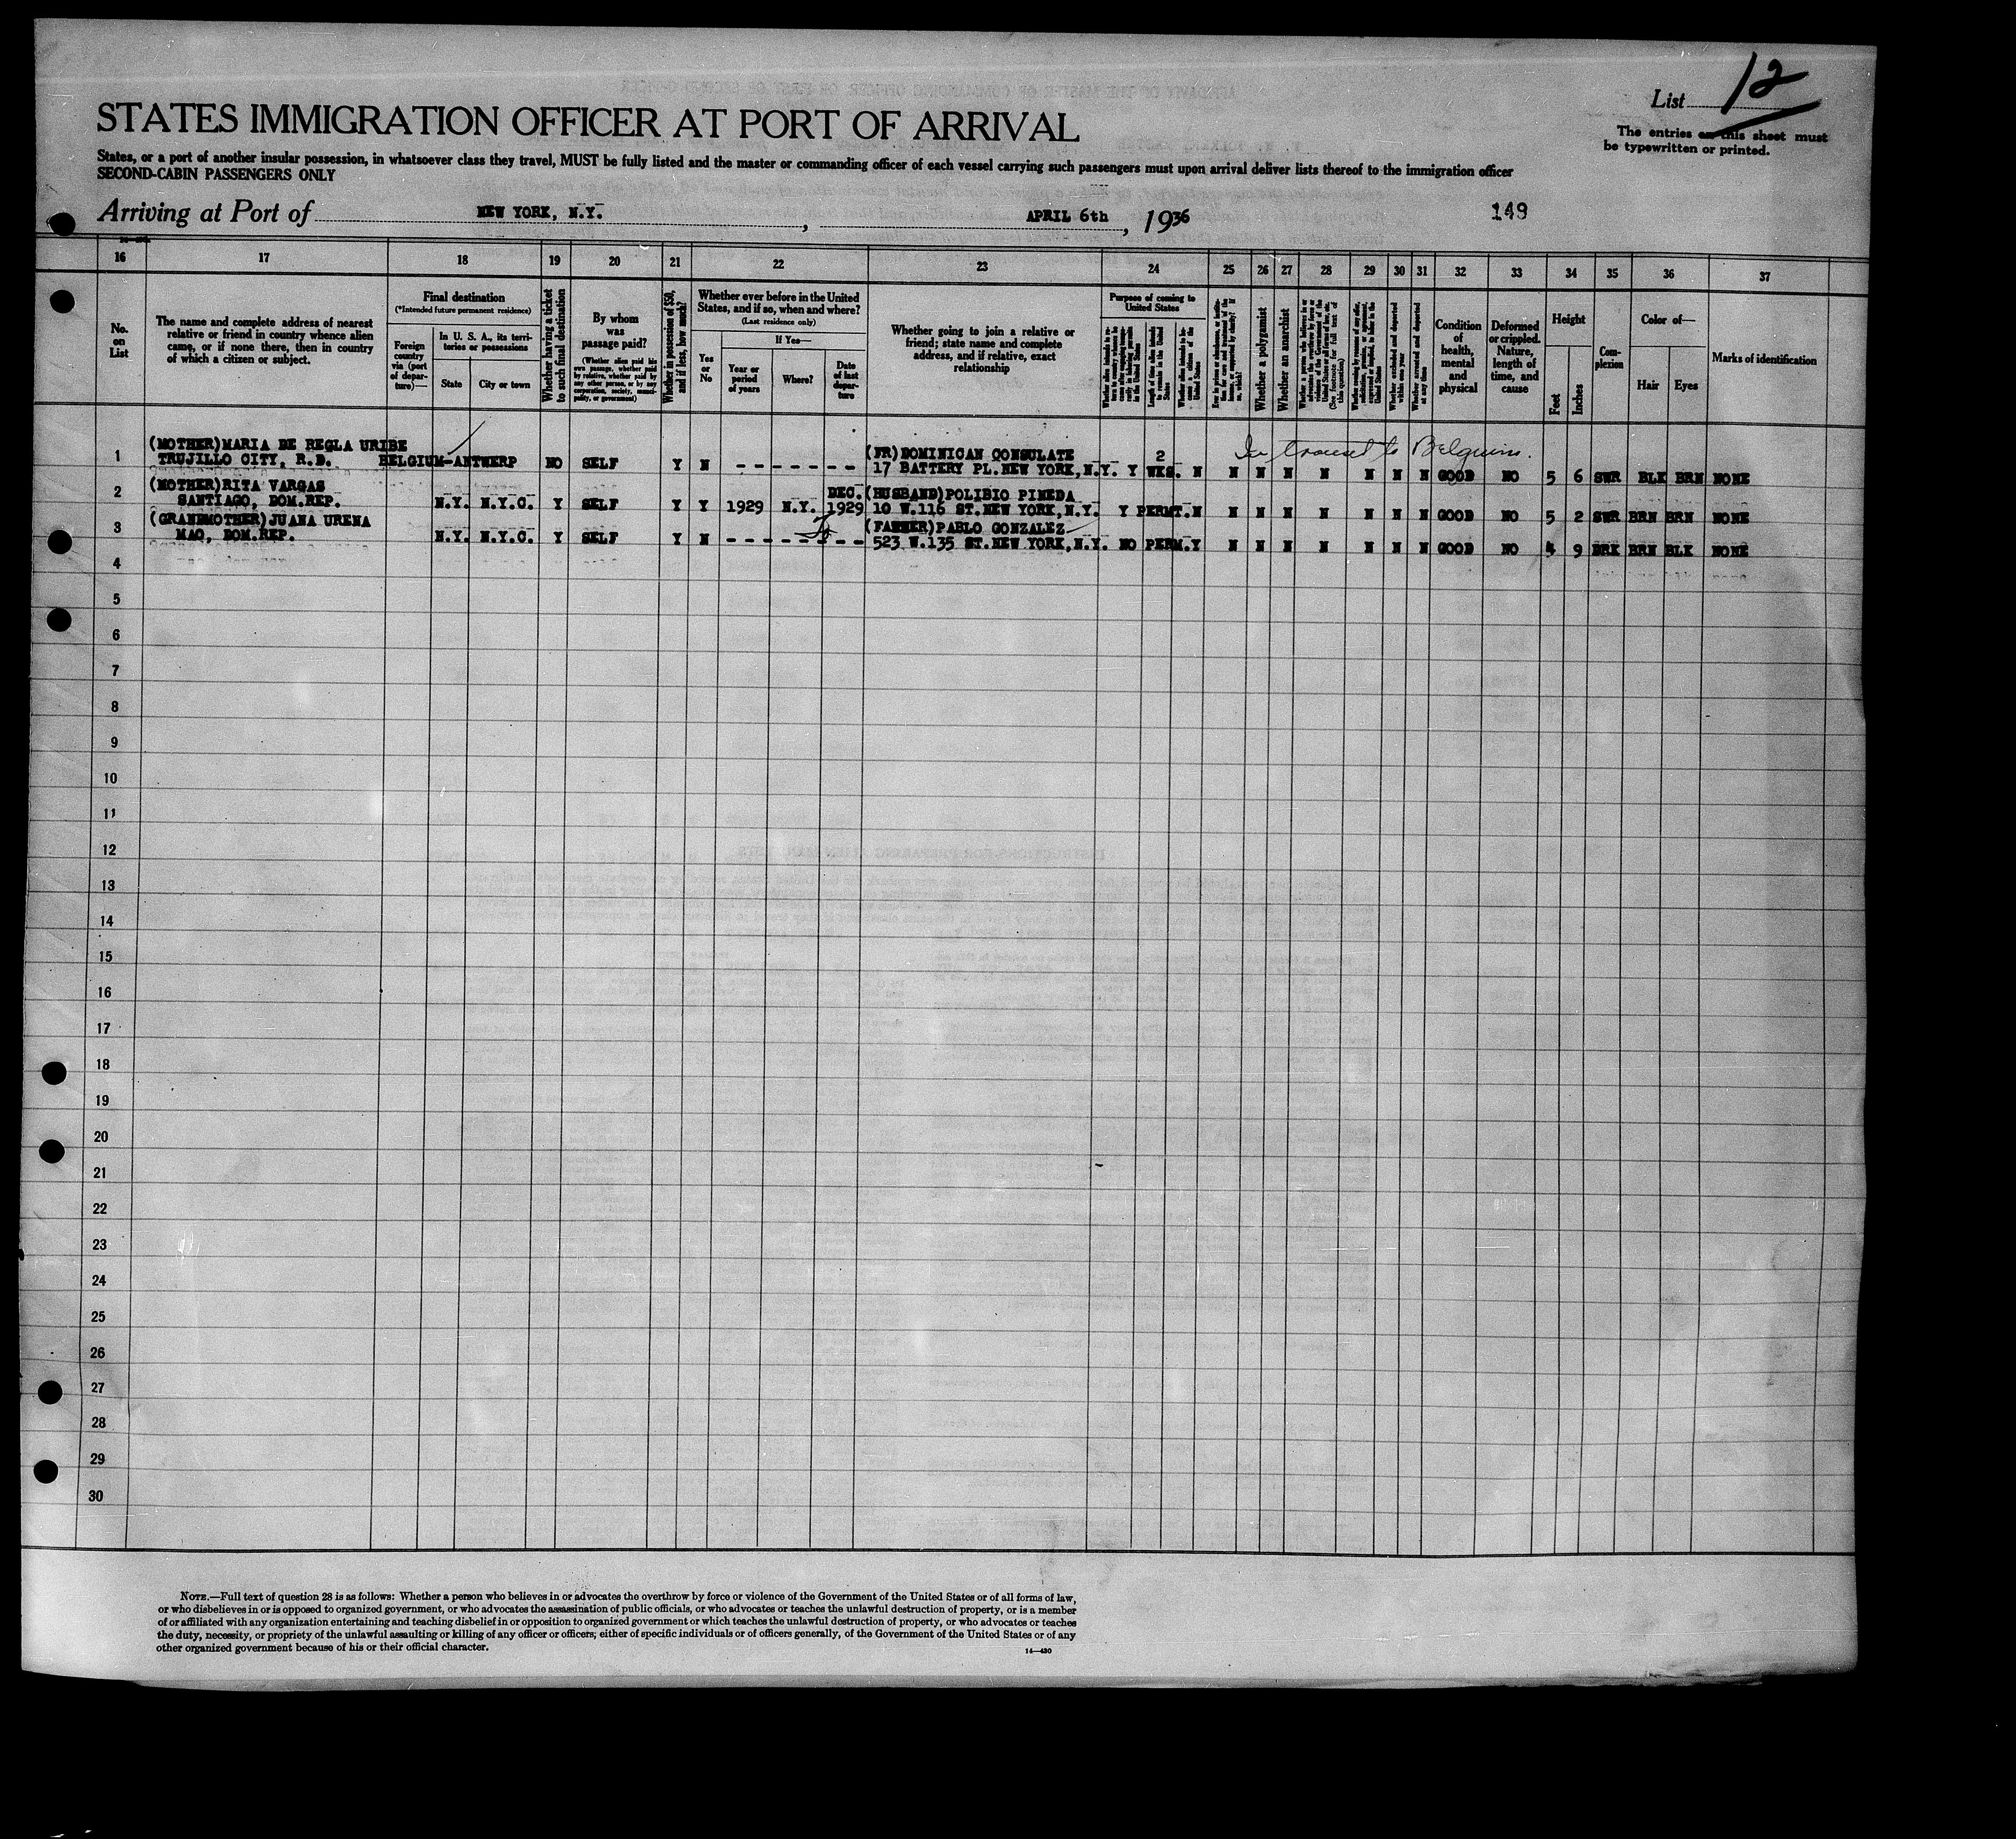 List 12
The entries on this sheet must
be typewritten or printed.
STATES IMMIGRATION OFFICER AT PORT OF ARRIVAL
States, or a port of another insular possession, in whatsoever class they travel, MUST be fully listed and the master or commanding officer of each vessel carrying such passengers must upon arrival deliver lists thereof to the immigration officer
SECOND-CABIN PASSENGERS ONLY
Arriving at Port of NEW YORK, N.Y. , APRIL 6th , 1936 149
16 17 18 19 20 21 22 23 24 25 26 27 28 29 30 31 32 33 34 35 36 37
No.
on
List
The name and complete address of nearest
relative or friend in country whence alien
came, or if none there, then in country
of which a citizen or subject.
Final destination
(*Intended future permanent residence)
Foreign
country
via (port
of depar-
ture)—
In U. S. A., its terri-
tories or possessions
State
City or town
Whether having a ticket
to such final destination
By whom
was
passage paid?
(Whether alien paid his
own passage, whether paid
by relative, whether paid by
any other person, or by any
corporation, society, munici-
pality, or government)
Whether in possession of $50,
and if less, how much?
Whether ever before in the United
States, and if so, when and where?
(Last residence only)
Yes
or
No
If Yes—
Year or
period
of years
Where?
Date
of last
depar-
ture
Whether going to join a relative or
friend; state name and complete
address, and if relative, exact
relationship
Purpose of coming to
United States
Whether a polygamist
Whether an anarchist
Whether arrested and deported
at any time
Condition
of
health,
mental
and
physical
Deformed
or crippled.
Nature,
length of
time, and
cause
Height
Feet
Inches
Com-
plexion
Color of—
Hair
Eyes
Marks of identification
In transit to Belgium.
1 (MOTHER)MARIA DE REGLA URIBE (FR)DOMINICAN CONSULATE 2
TRUJILLO CITY, R.D. BELGIUM-ANTWERP NO SELF Y N - - - - - - 17 BATTERY PL.NEW YORK,N.Y. Y WKS. N N N N N N N N GOOD NO 5 6 SWR BLK BRN NONE
2 (MOTHER)RITA VARGAS DEC. (HUSBAND)POLIBIO PINEDA
SANTIAGO, DOM.REP. N.Y. N.Y.C. Y SELF Y Y 1929 N.Y. 1929 10 W.116 ST.NEW YORK,N.Y. Y PERMT.N N N N N N N N GOOD NO 5 2 SWR BRN BRN NONE
3 (GRANDMOTHER)JUANA URENA (FATHER)PABLO GONZALEZ
MAO, DOM.REP. N.Y. N.Y.C. Y SELF Y N - - - - - - - - 523 W.135 ST.NEW YORK,N.Y. NO PERM.Y N N N N N N N GOOD NO 4 9 BRK BRN BLK NONE
4
5
6
7
8
9
10
11
12
13
14
15
16
17
18
19
20
21
22
23
24
25
26
27
28
29
30
NOTE.—Full text of question 28 is as follows: Whether a person who believes in or advocates the overthrow by force or violence of the Government of the United States or of all forms of law,
or who disbelieves in or is opposed to organized government, or who advocates the assassination of public officials, or who advocates or teaches the unlawful destruction of property, or is a member
of or affiliated with any organization entertaining and teaching disbelief in or opposition to organized government or which teaches the unlawful destruction of property, or who advocates or teaches
the duty, necessity, or propriety of the unlawful assaulting or killing of any officer or officers; either of specific individuals or of officers generally, of the Government of the United States or of any
other organized government because of his or their official character.
14—430